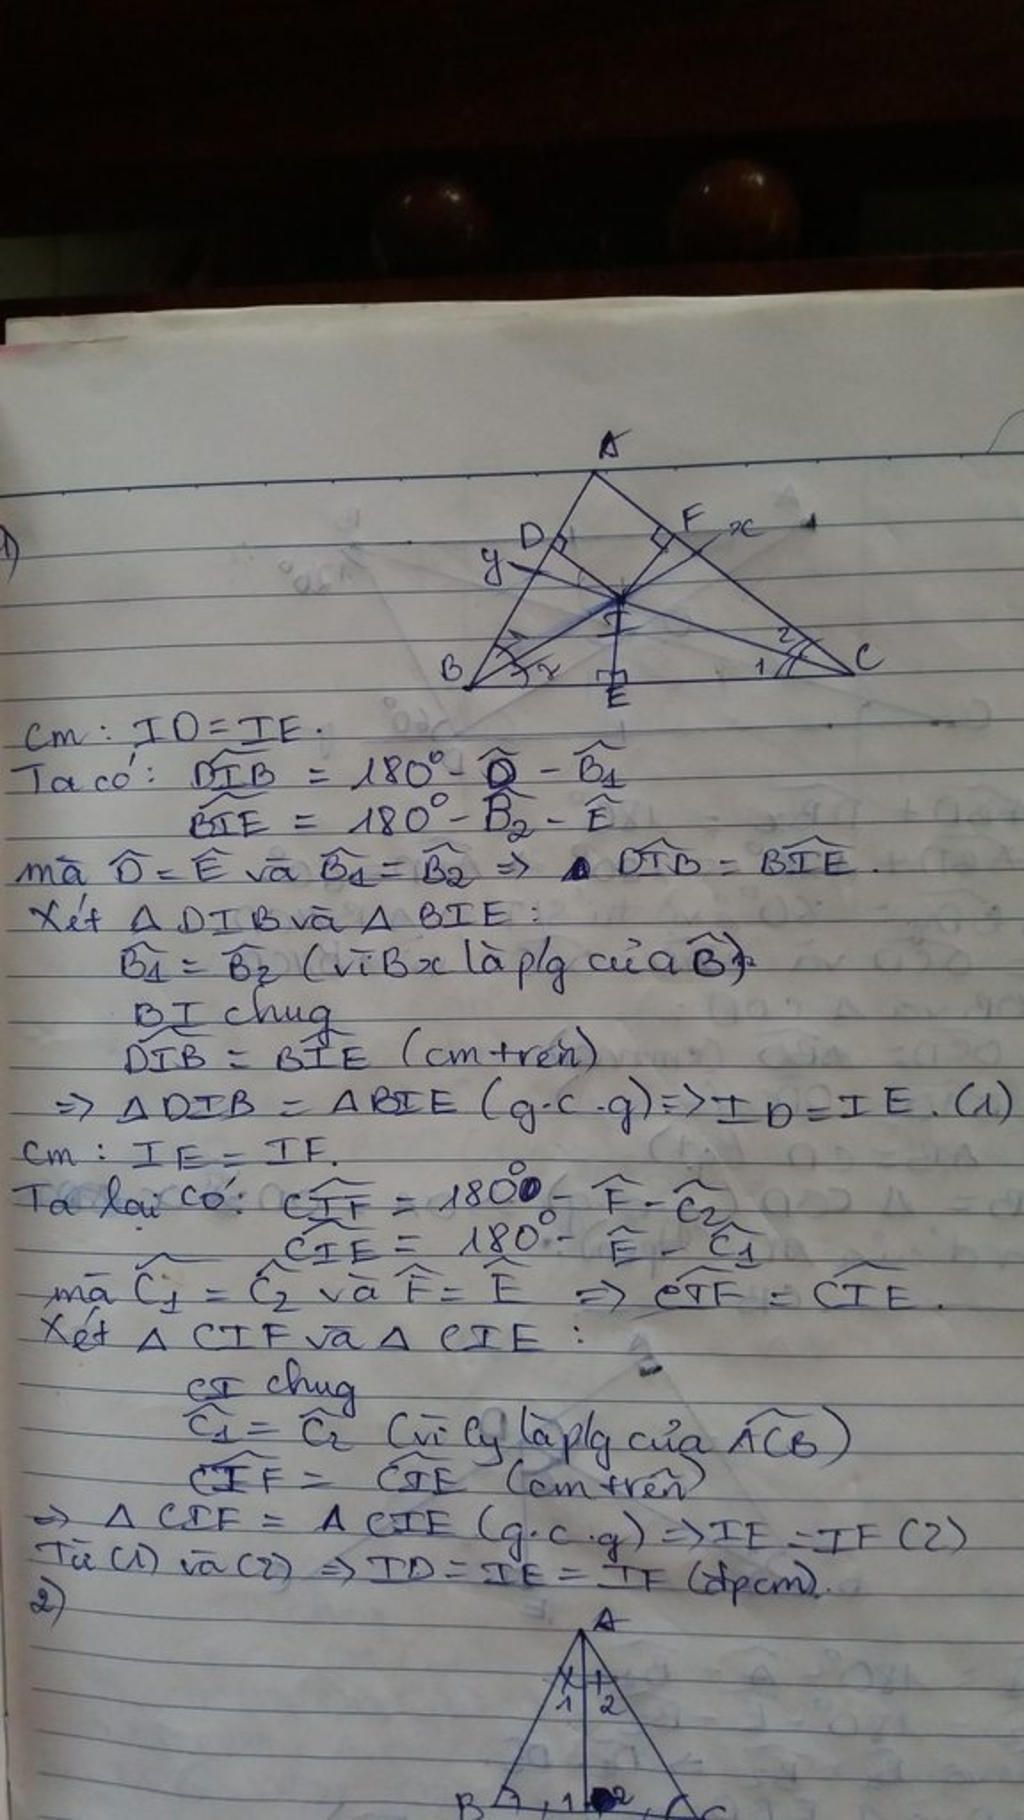 1)
A
D
F
x
y
I
2
B
2
1
C
E
Cm : ID = IE.
Ta có: \widehat{DIB} = 180° - \widehat{D} - \widehat{B_1}
\widehat{BIE} = 180° - \widehat{B_2} - \widehat{E}
mà \widehat{D} = \widehat{E} và \widehat{B_1} = \widehat{B_2} => \widehat{DIB} = \widehat{BIE}.
Xét Δ DIB và Δ BIE :
\widehat{B_1} = \widehat{B_2} (vì Bx là p/g của \widehat{B})
BI chug
\widehat{DIB} = \widehat{BIE} (cm trên)
=> Δ DIB = Δ BIE (g.c.g) => ID = IE. (1)
Cm : IE = IF.
Ta lại có: \widehat{CIF} = 180° - \widehat{F} - \widehat{C_2}
\widehat{CIE} = 180° - \widehat{E} - \widehat{C_1}
mà \widehat{C_1} = \widehat{C_2} và \widehat{F} = \widehat{E} => \widehat{CIF} = \widehat{CIE}.
Xét Δ CIF và Δ CIE :
CI chug
\widehat{C_1} = \widehat{C_2} (vì Cy là p/g của \widehat{ACB})
\widehat{CIF} = \widehat{CIE} (cm trên)
=> Δ CIF = Δ CIE (g.c.g) => IE = IF (2)
Từ (1) và (2) => ID = IE = IF (đpcm).
2)
A
1 2
B 1 2 C